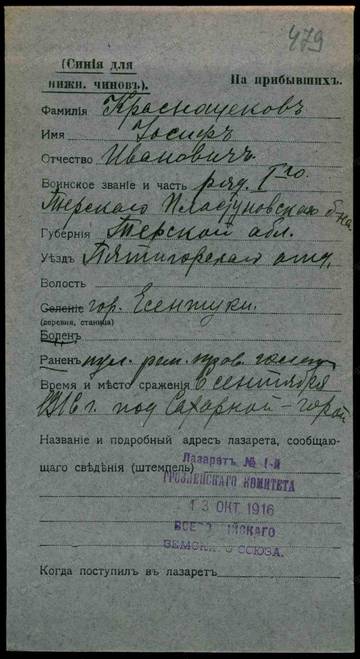 479
(Синія для
нижн. чиновъ).
На прибывшихъ.
Фамилія Краснощековъ
Имя Іосифъ
Отчество Ивановичъ
Воинское званіе и часть ряд. 1го
Терскаго Пластуновскаго б-на
Губернія Терской обл.
Уѣздъ Пятигорскаго отд.
Волость
Селеніе гор. Есентуки.
(деревня, станица)
Боленъ
Раненъ пул.
Время и мѣсто сраженія 6 сентября
1916 г. под Сахарной-горой
Названіе и подробный адресъ лазарета, сообщаю-
щаго свѣдѣнія (штемпель)
Лазаретъ № 1-й
ГРОЗНЕНСКАГО КОМИТЕТА
13 ОКТ 1916
ЗЕМСКАГО СОЮЗА.
Когда поступилъ въ лазаретъ